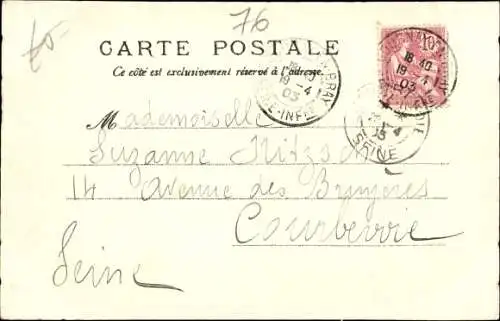 76
CARTE POSTALE
Ce côté est exclusivement réservé à l'adresse.
10
18 40
19 - 4
03
BRAY
INFRE
19 - 4
03
SEINE
Mademoiselle
Suzanne
14 Avenue des Bruyères
Courbevoie
Seine